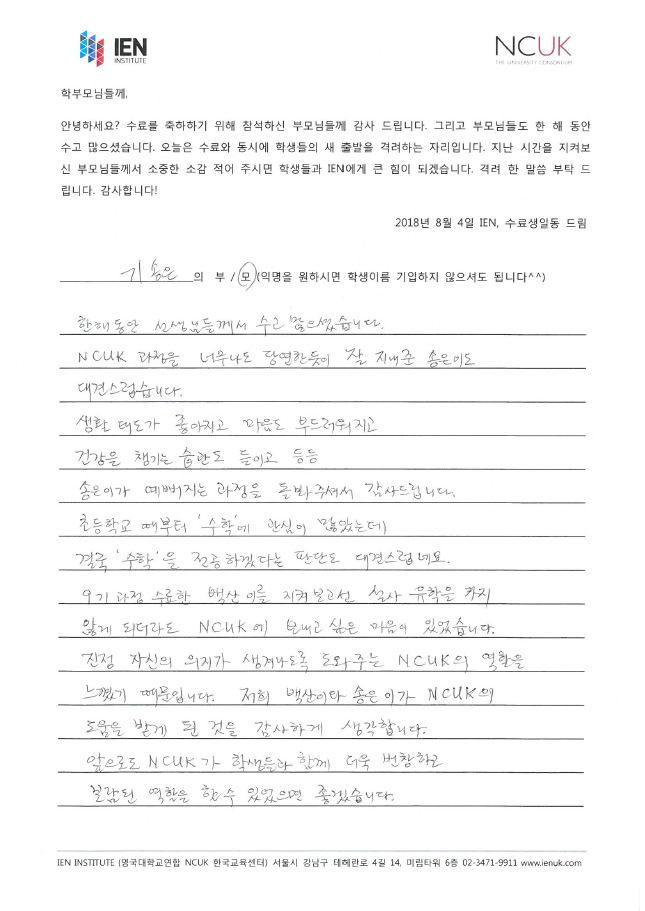 IEN
INSTITUTE
NCUK
THE UNIVERSITY CONSORTIUM
학부모님들께,
안녕하세요? 수료를 축하하기 위해 참석하신 부모님들께 감사 드립니다. 그리고 부모님들도 한 해 동안
수고 많으셨습니다. 오늘은 수료와 동시에 학생들의 새 출발을 격려하는 자리입니다. 지난 시간을 지켜보
신 부모님들께서 소중한 소감 적어 주시면 학생들과 IEN에게 큰 힘이 되겠습니다. 격려 한 말씀 부탁 드
립니다. 감사합니다!
2018년 8월 4일 IEN, 수료생일동 드림
기송은 의 부 / 모 (익명을 원하시면 학생이름 기입하지 않으셔도 됩니다^^)
한해동안 선생님들께서 수고 많으셨습니다.
NCUK 과정을 너무나도 당연한듯이 잘 지내준 송은이도
대견스럽습니다.
생활 태도가 좋아지고 마음도 부드러워지고
건강을 챙기는 습관도 들이고 등등
송은이가 예뻐지는 과정을 돌봐주셔서 감사드립니다.
초등학교 때부터 '수학'에 관심이 많았는데
결국 '수학'을 전공하겠다는 판단도 대견스럽네요.
9기 과정 수료한 백산이를 지켜보고선 설사 유학을 가지
않게 되더라도 NCUK에 보내고 싶은 마음이 있었습니다.
진정 자신의 의지가 생겨나도록 도와주는 NCUK의 역할을
느꼈기 때문입니다. 저희 백산이와 송은이가 NCUK의
도움을 받게 된 것을 감사하게 생각합니다.
앞으로도 NCUK가 학생들과 함께 더욱 번창하고
보람된 역할을 할 수 있었으면 좋겠습니다.
IEN INSTITUTE (영국대학교연합 NCUK 한국교육센터) 서울시 강남구 테헤란로 4길 14, 미림타워 6층 02-3471-9911 www.ienuk.com